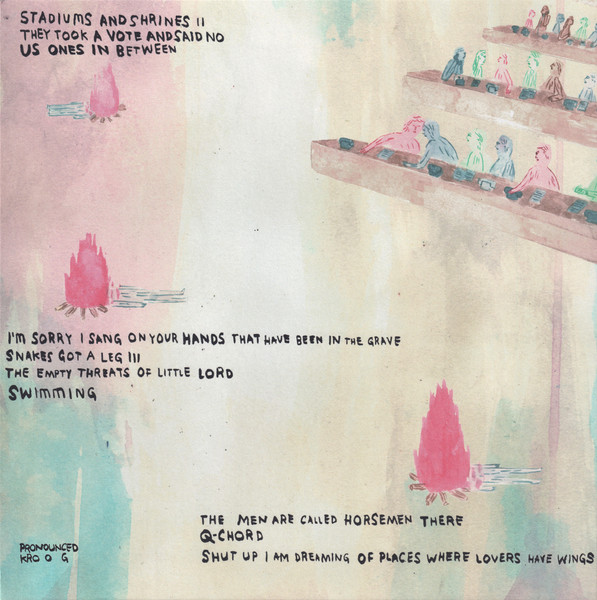 STADIUMS AND SHRINES II
THEY TOOK A VOTE AND SAID NO
US ONES IN BETWEEN
I'M SORRY I SANG ON YOUR HANDS THAT HAVE BEEN IN THE GRAVE
SNAKES GOT A LEG III
THE EMPTY THREATS OF LITTLE LORD
SWIMMING
THE MEN ARE CALLED HORSEMEN THERE
Q-CHORD
SHUT UP I AM DREAMING OF PLACES WHERE LOVERS HAVE WINGS
PRONOUNCED
KROOG